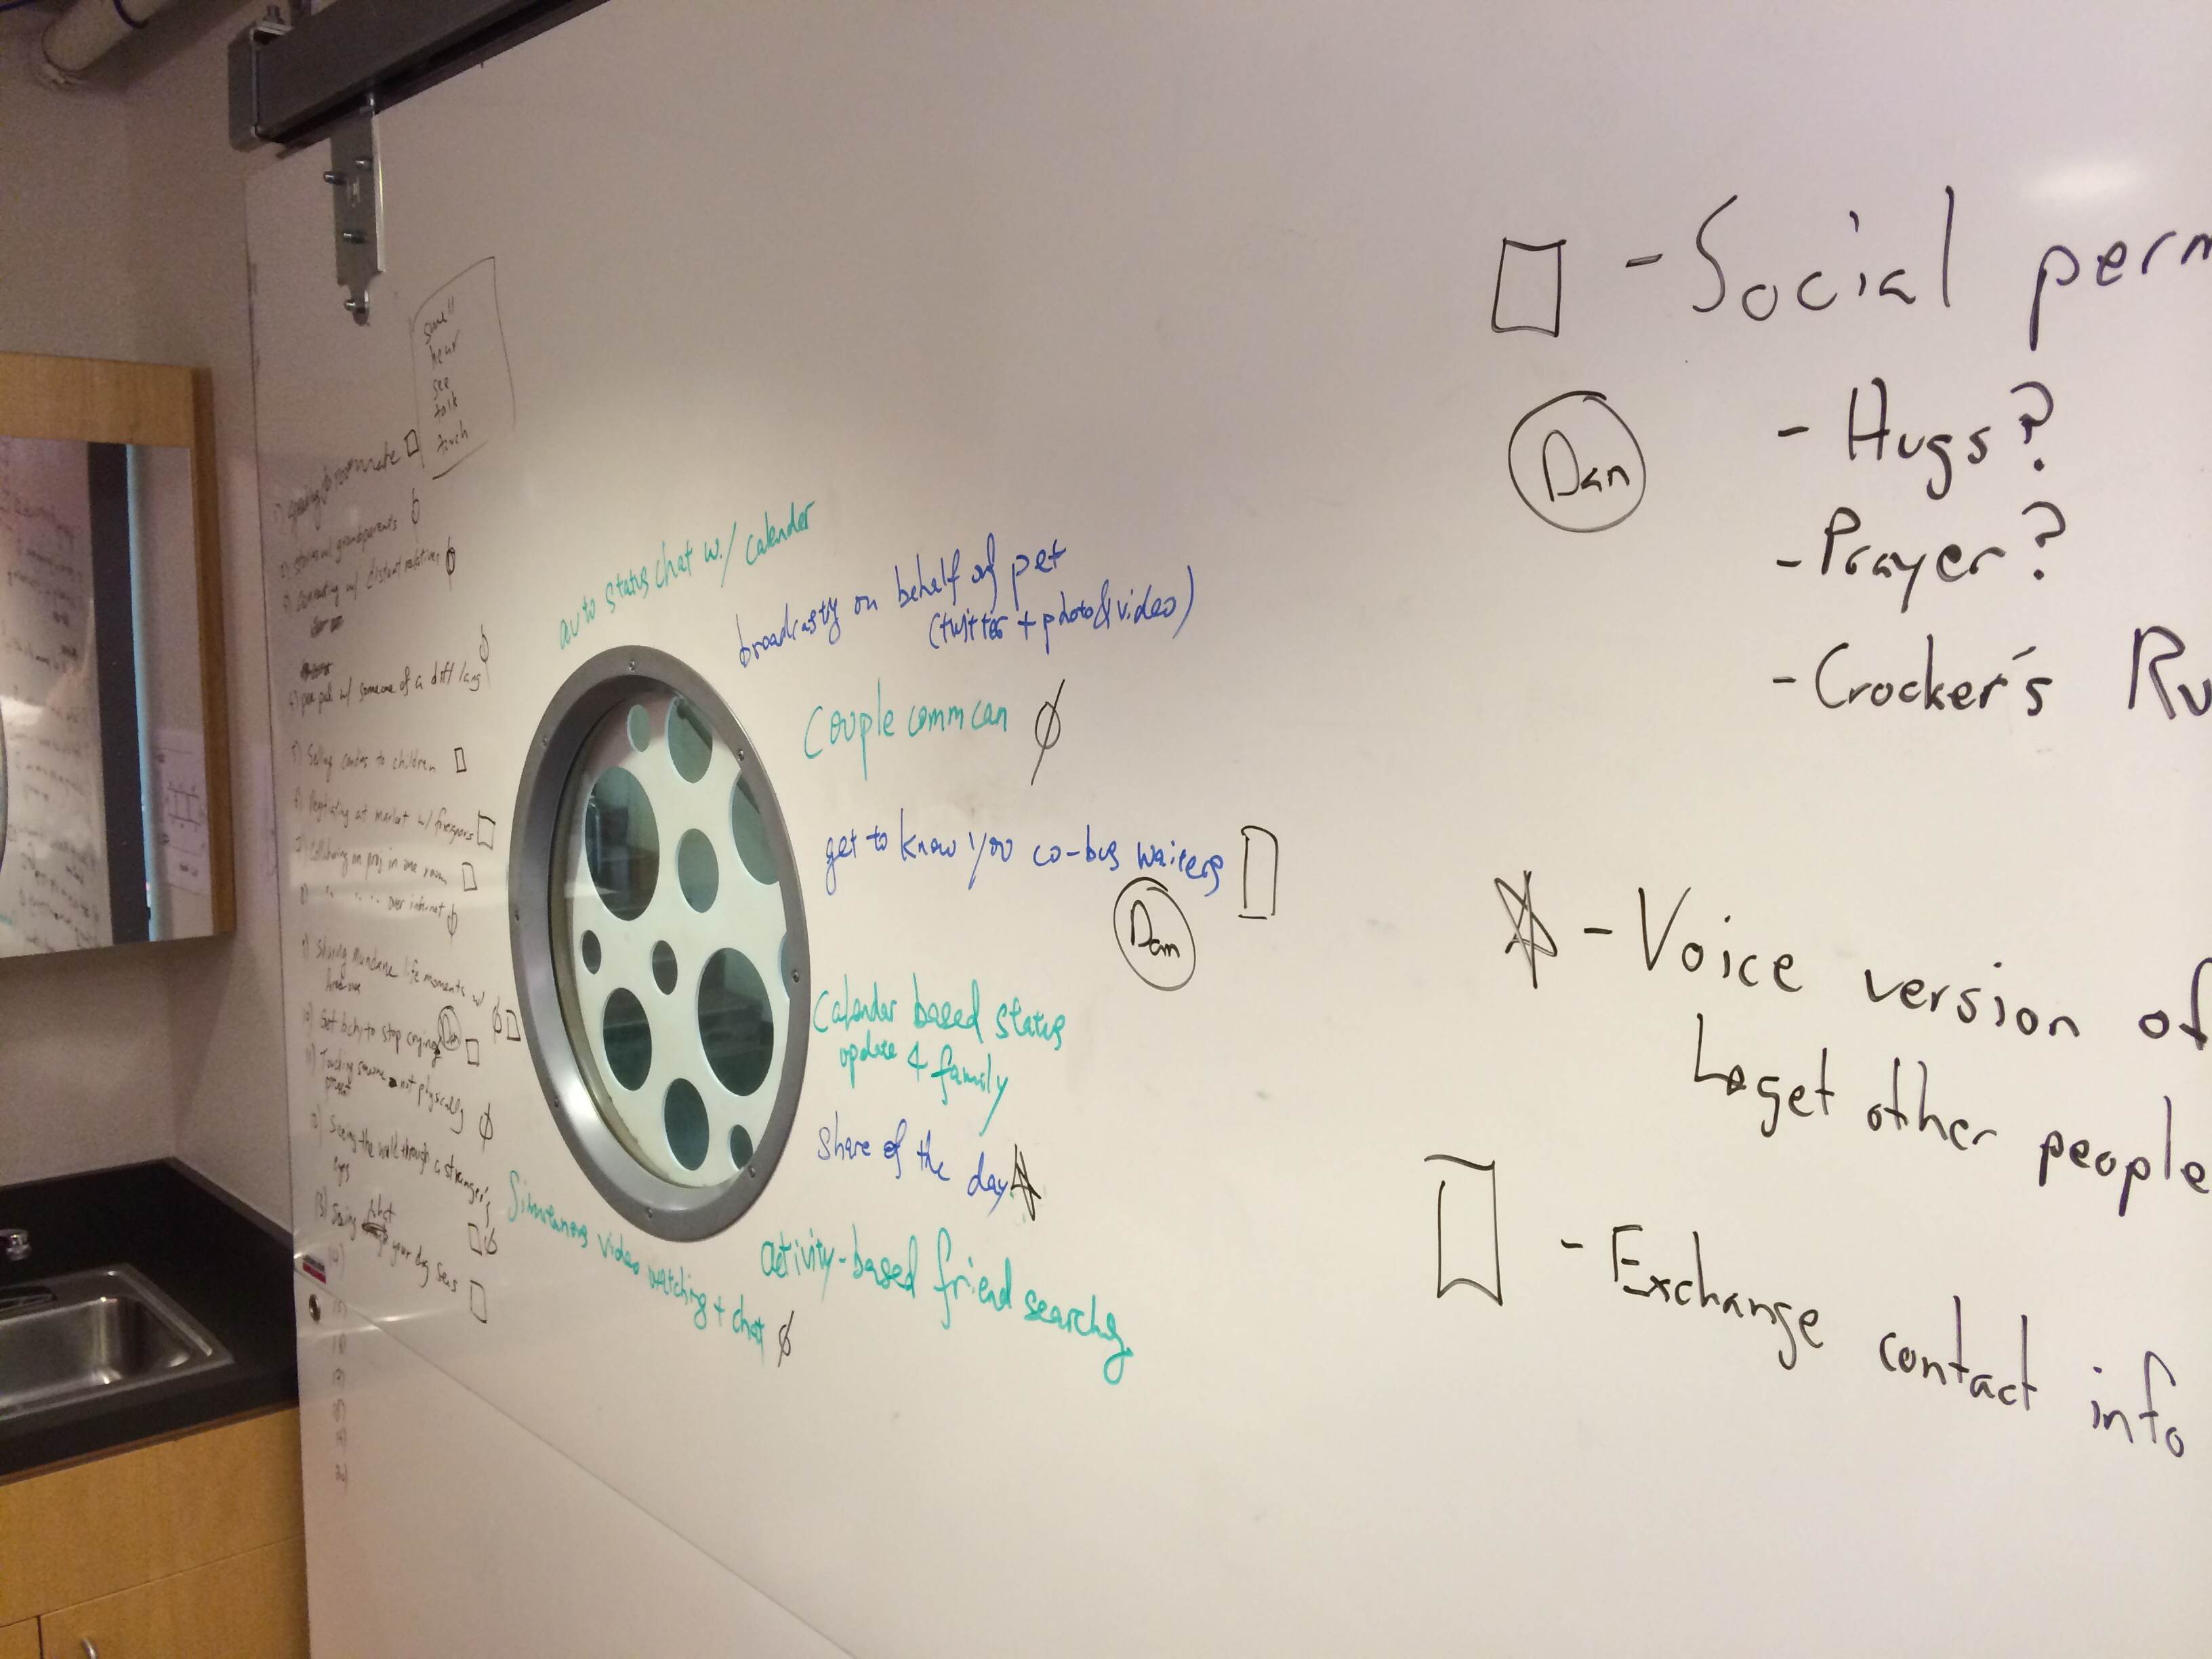 smell
hear
see
talk
touch
roommate
2) stories w/ grandparents
3) connecting w/ distant relatives
4) pen pal w/ someone of a diff lang
5) Selling candies to children
6) Negotiating at market w/ foreigners
7) Collaborating on proj in one room
8) " " " " over internet
9) Sharing mundane life moments w/
10) Get baby to stop crying
Dan
11) Touching someone not physically
present
12) Seeing the world through a stranger's
eyes
13) Seeing what your dog sees
14)
15)
auto status chat w/ calender
broadcasty on behalf of pet
(twitter + photo & video)
Couple comm can
get to know you co-bus waiters
Dan
Calender based status
update 4 family
Share of the day
Simultaneous video watching + chat
activity-based friend searchg
- Social perm
Dan
- Hugs?
- Prayer?
- Crocker's Ru
- Voice version of
get other people
- Exchange contact info